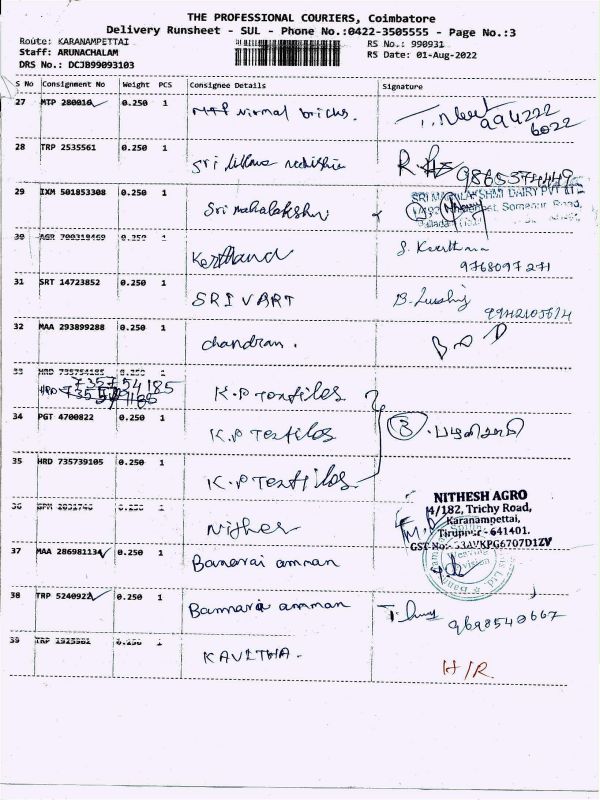 THE PROFESSIONAL COURIERS, Coimbatore
Delivery Runsheet - SUL - Phone No.:0422-3505555 - Page No.:3
Route: KARANAMPETTAI
Staff: ARUNACHALAM
DRS No.: DCJB99093103
RS No.: 990931
RS Date: 01-Aug-2022
S No Consignment No Weight PCS Consignee Details Signature
27 MTP 280016 0.250 1 MTP nirmal bricks.
994222
6022
28 TRP 2535561 0.250 1 Sri
9865374449
29 IXM 501853308 0.250 1 Sri mahalakshmi
SRI MAHALAKSHMI DAIRY PVT LTD
Road,
30 AGR 700319469 0.250 1
S. Keerthana
9768097271
31 SRT 14723852 0.250 1 SRIVART
32 MAA 293899288 0.250 1 chandran.
33 HRD 735754185 0.250 1 K.P Textiles
HRD 735754185
34 PGT 4700822 0.250 1 K.P Textiles
35 HRD 735739105 0.250 1 K.P Textiles
NITHESH AGRO
4/182, Trichy Road,
Karanampettai,
Tiruppur - 641401.
GST No: 33AVKPG6707D1ZV
36 0.250 1 Nithes
37 MAA 286981134 0.250 1 Banarai amman
38 TRP 5240922 0.250 1 Bannari amman
9698540667
39 TRP 1925581 0.250 1 KAVITHA.
H/R